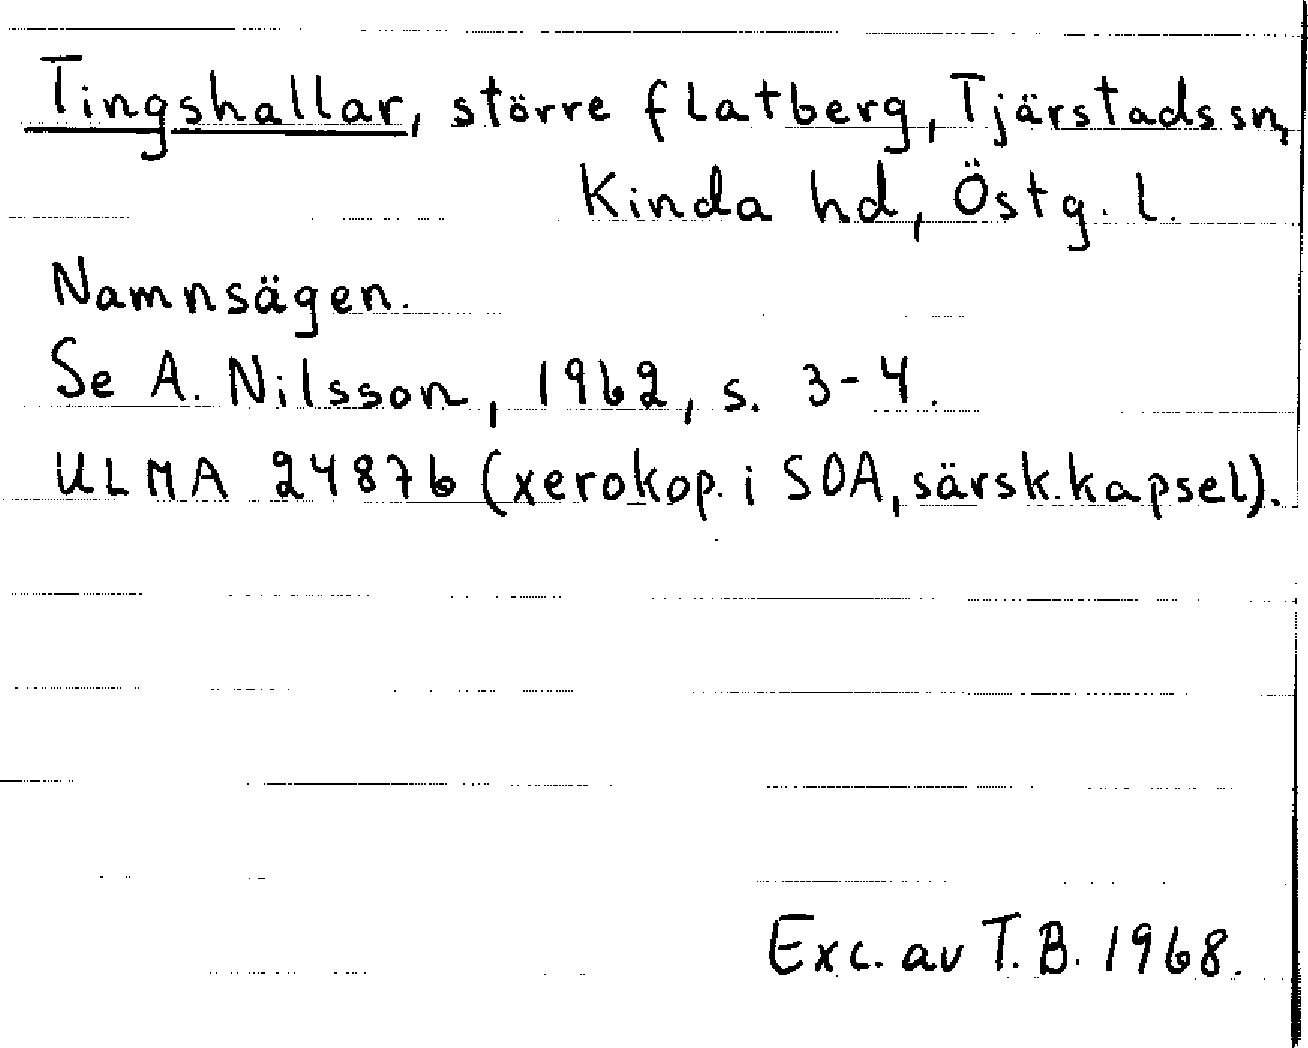 Tingshallar, större flatberg, Tjärstads sn,
Kinda hd, Östg. l.
Namnsägen.
Se A. Nilsson, 1962, s. 3-4.
ULMA 24876 (xerokop. i SOA, särsk. kapsel).
Exc. av T.B. 1968.